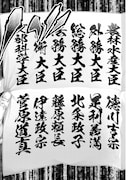 農林水産大臣 徳川吉宗
外務大臣 足利義満
総務大臣 北条政子
務大臣 藤原頼長
大臣 伊達政宗
部科学大臣 菅原道真